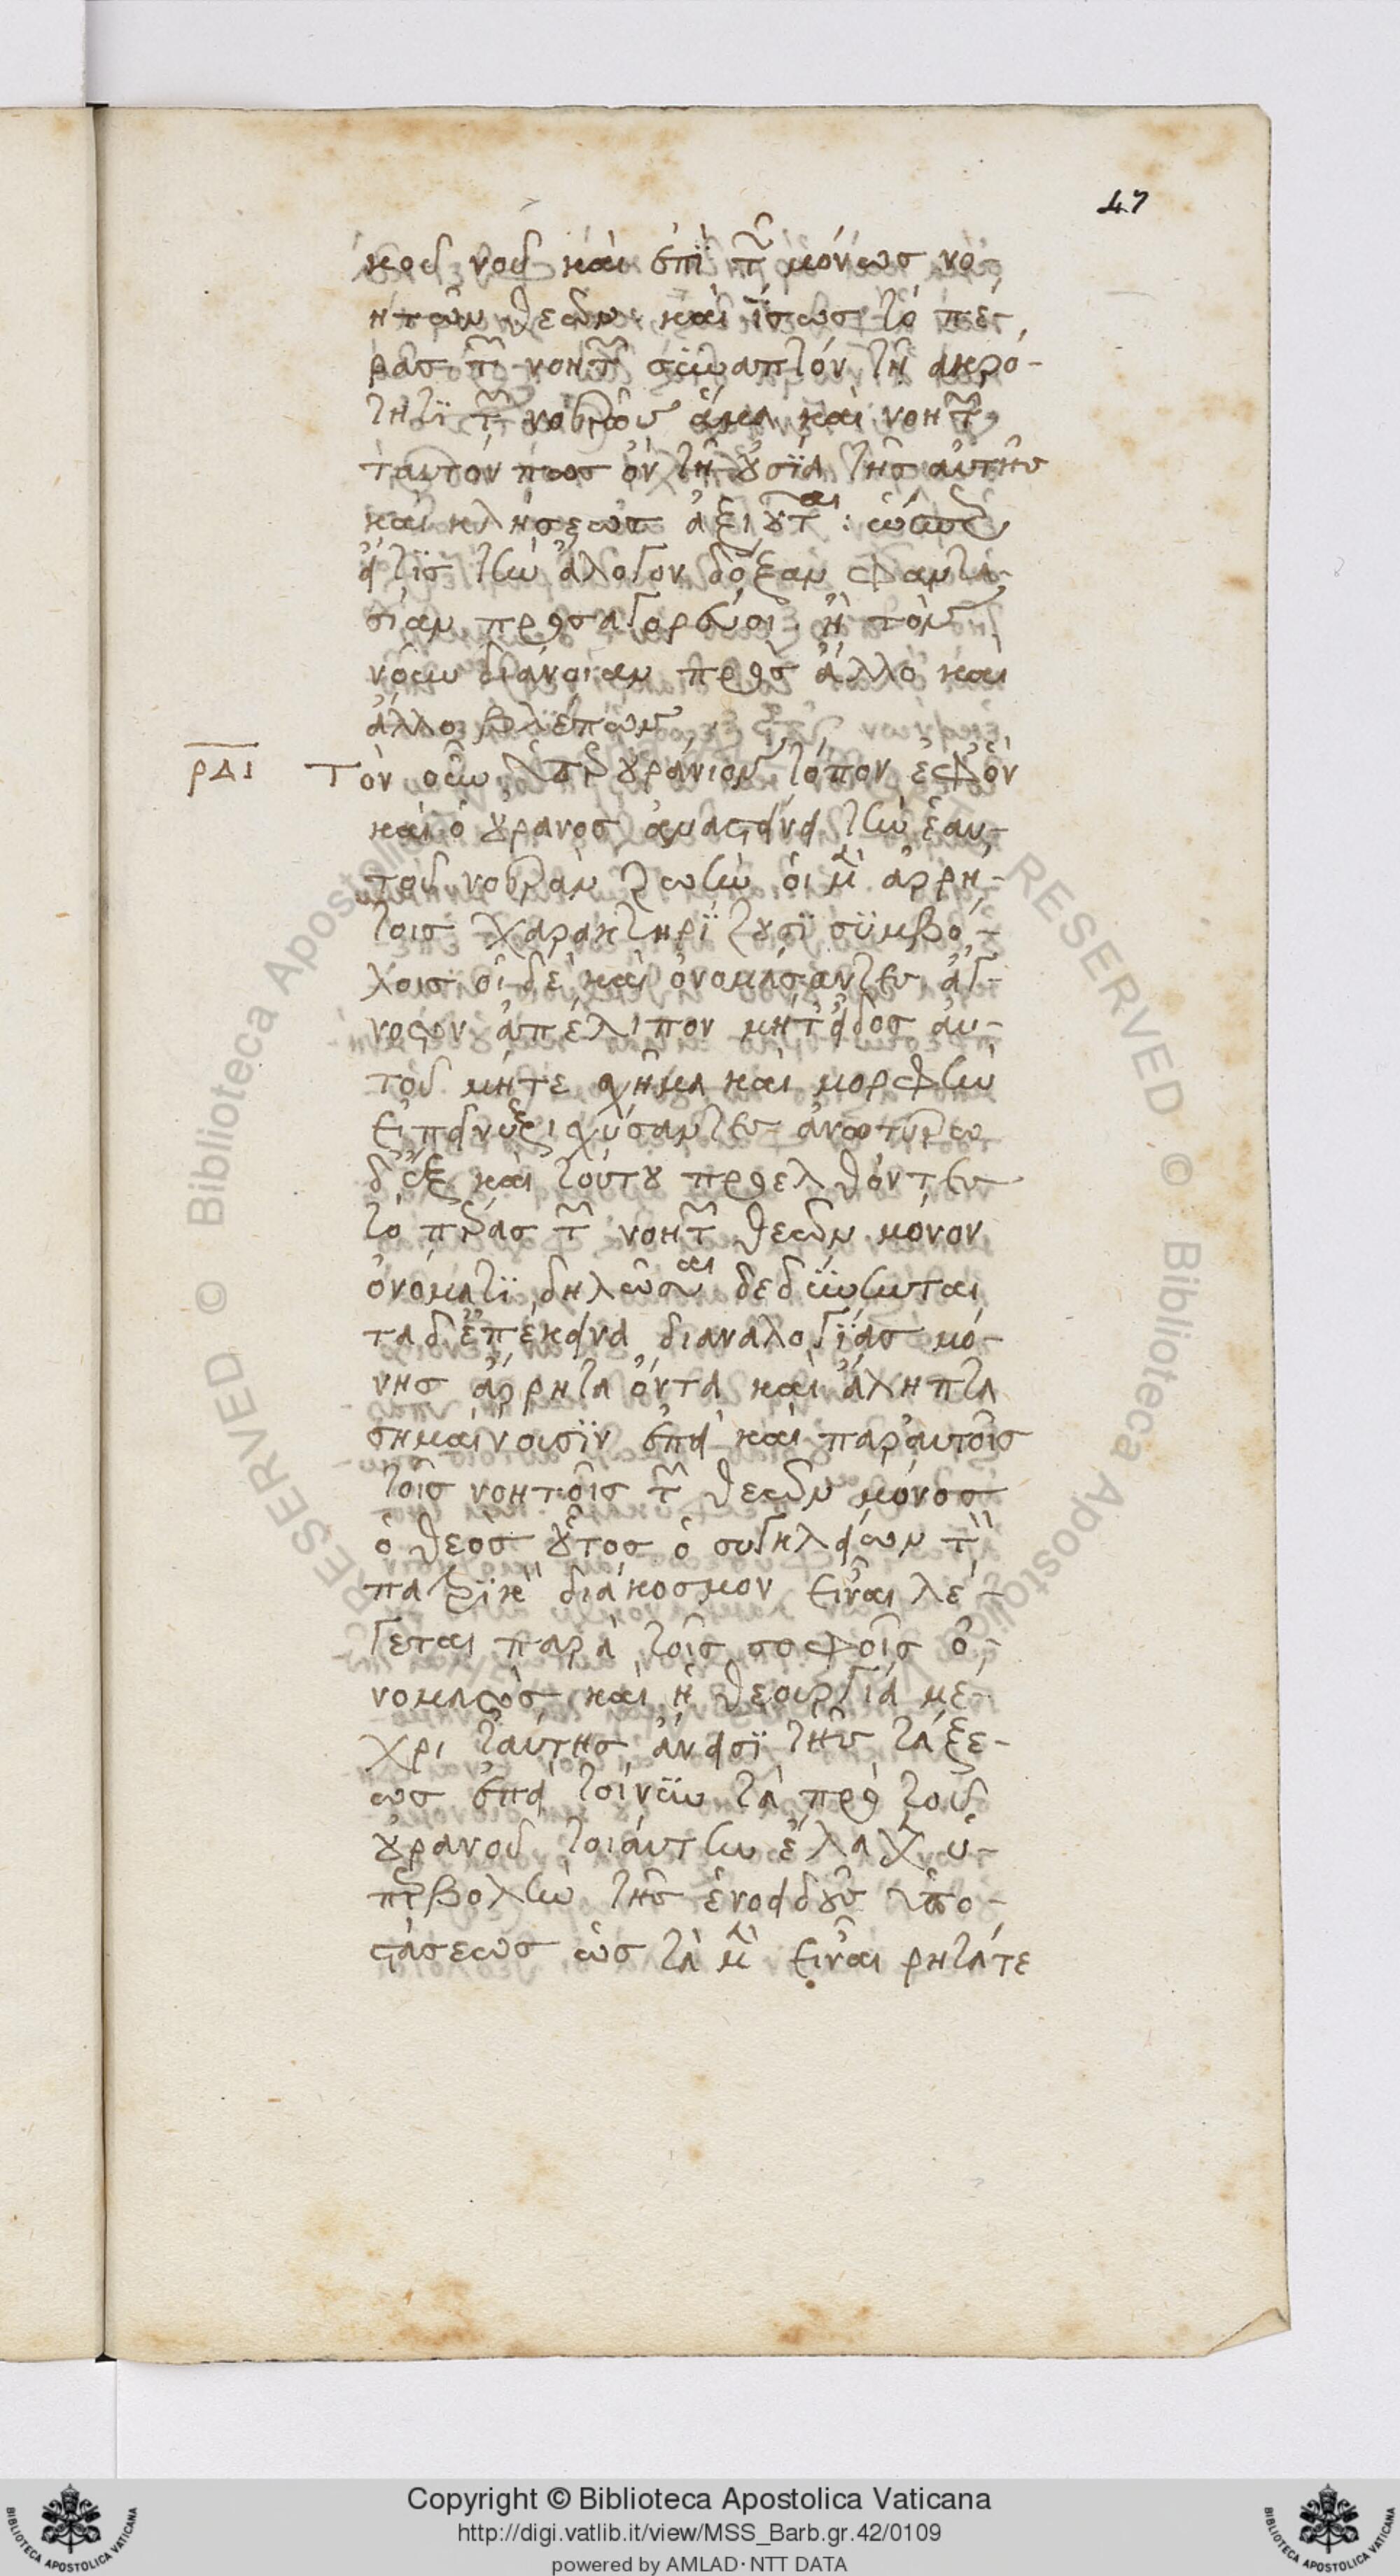 47
κοῦ νοῦ καὶ ἐπὶ τῶν μόνως νο-
ητῶν θεῶν· καὶ ἴσως τὸ πέ-
ρας τῶν νοητῶν συναπτόν τῇ ἀκρό-
τητι τῶν νοερῶν ἅμα καὶ νοητῶν
ταυτόν πως ὂν τῇ οὐσίᾳ τῆς αὐτῆς
καὶ κλήσεως ἀξιοῦται:
εἴ τις τὴν ἄλογον δόξαν φαντα-
σίαν προσαγορεύοι ἢ τὸν
νοῦν διάνοιαν πρὸς ἄλλο καὶ
ἄλλο βλέπων
ΡΔΙ Τὸν οὖν ὑπερουράνιον τόπον ἐφ' ὃν
καὶ ὁ οὐρανὸς ἀνατείνει τὴν ἑαυ-
τοῦ νοερὰν ζωὴν οἱ μὲν ἀρρή-
τοις χαρακτηρίζουσι συμβό-
λοις οἱ δὲ καὶ ὀνομάσαντες ἄγ-
νωστον ἀπέλιπον μήτ' εἶδος αὐ-
τοῦ μήτε σχῆμα καὶ μορφὴν
εἰπεῖν ἰσχύσαντες ἀνωτέρω
δ' ἔτι καὶ τούτου προελθόντες
τὸ πέρας τῶν νοητῶν θεῶν μόνον
ὀνόματι δηλῶσαι δεδύνηνται
τὰ δ' ἐπέκεινα δι' ἀναλογίας μό-
νης ἄρρητα ὄντα καὶ ἄληπτα
σημαίνουσιν ἐπεὶ καὶ παρ' αὐτοῖς
τοῖς νοητοῖς τῶν θεῶν μόνος
ὁ θεὸς οὗτος ὁ συγκλείων τὸν
πατρικὸν διάκοσμον εἶναι λέ-
γεται παρὰ τοῖς σοφοῖς ὀ-
νομαστὸς καὶ ἡ θεουργία μέ-
χρι ταύτης ἄνεισι τῆς τάξε-
ως ἐπεὶ τοίνυν τὰ πρὸ τοῦ
οὐρανοῦ τοιαύτην ἔλαχεν ὑ-
περβολὴν τῆς ἑνοειδοῦς ὑπο-
στάσεως ὡς τὰ μὲν εἶναι ρητά τε
Copyright © Biblioteca Apostolica Vaticana
http://digi.vatlib.it/view/MSS_Barb.gr.42/0109
powered by AMLAD · NTT DATA